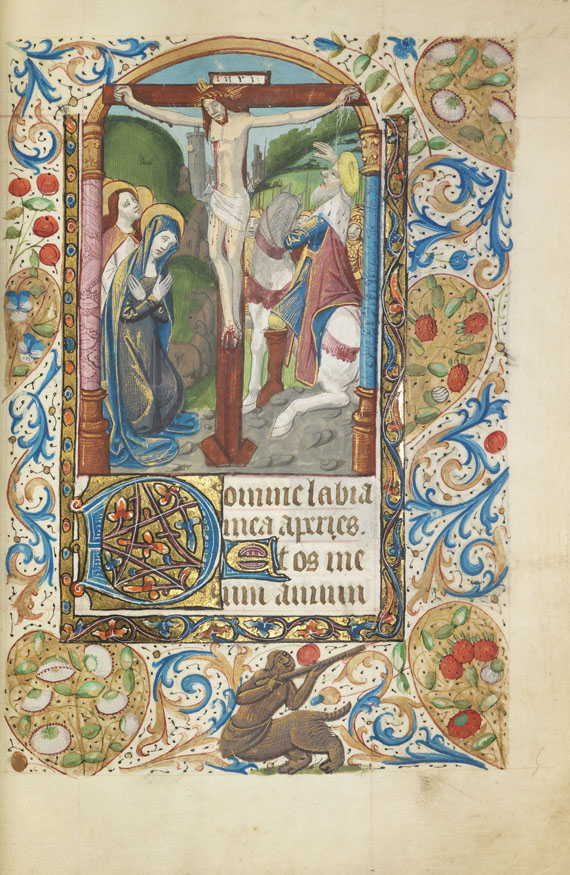 INRI
Domine labia
mea apries.
Et os me
um annun